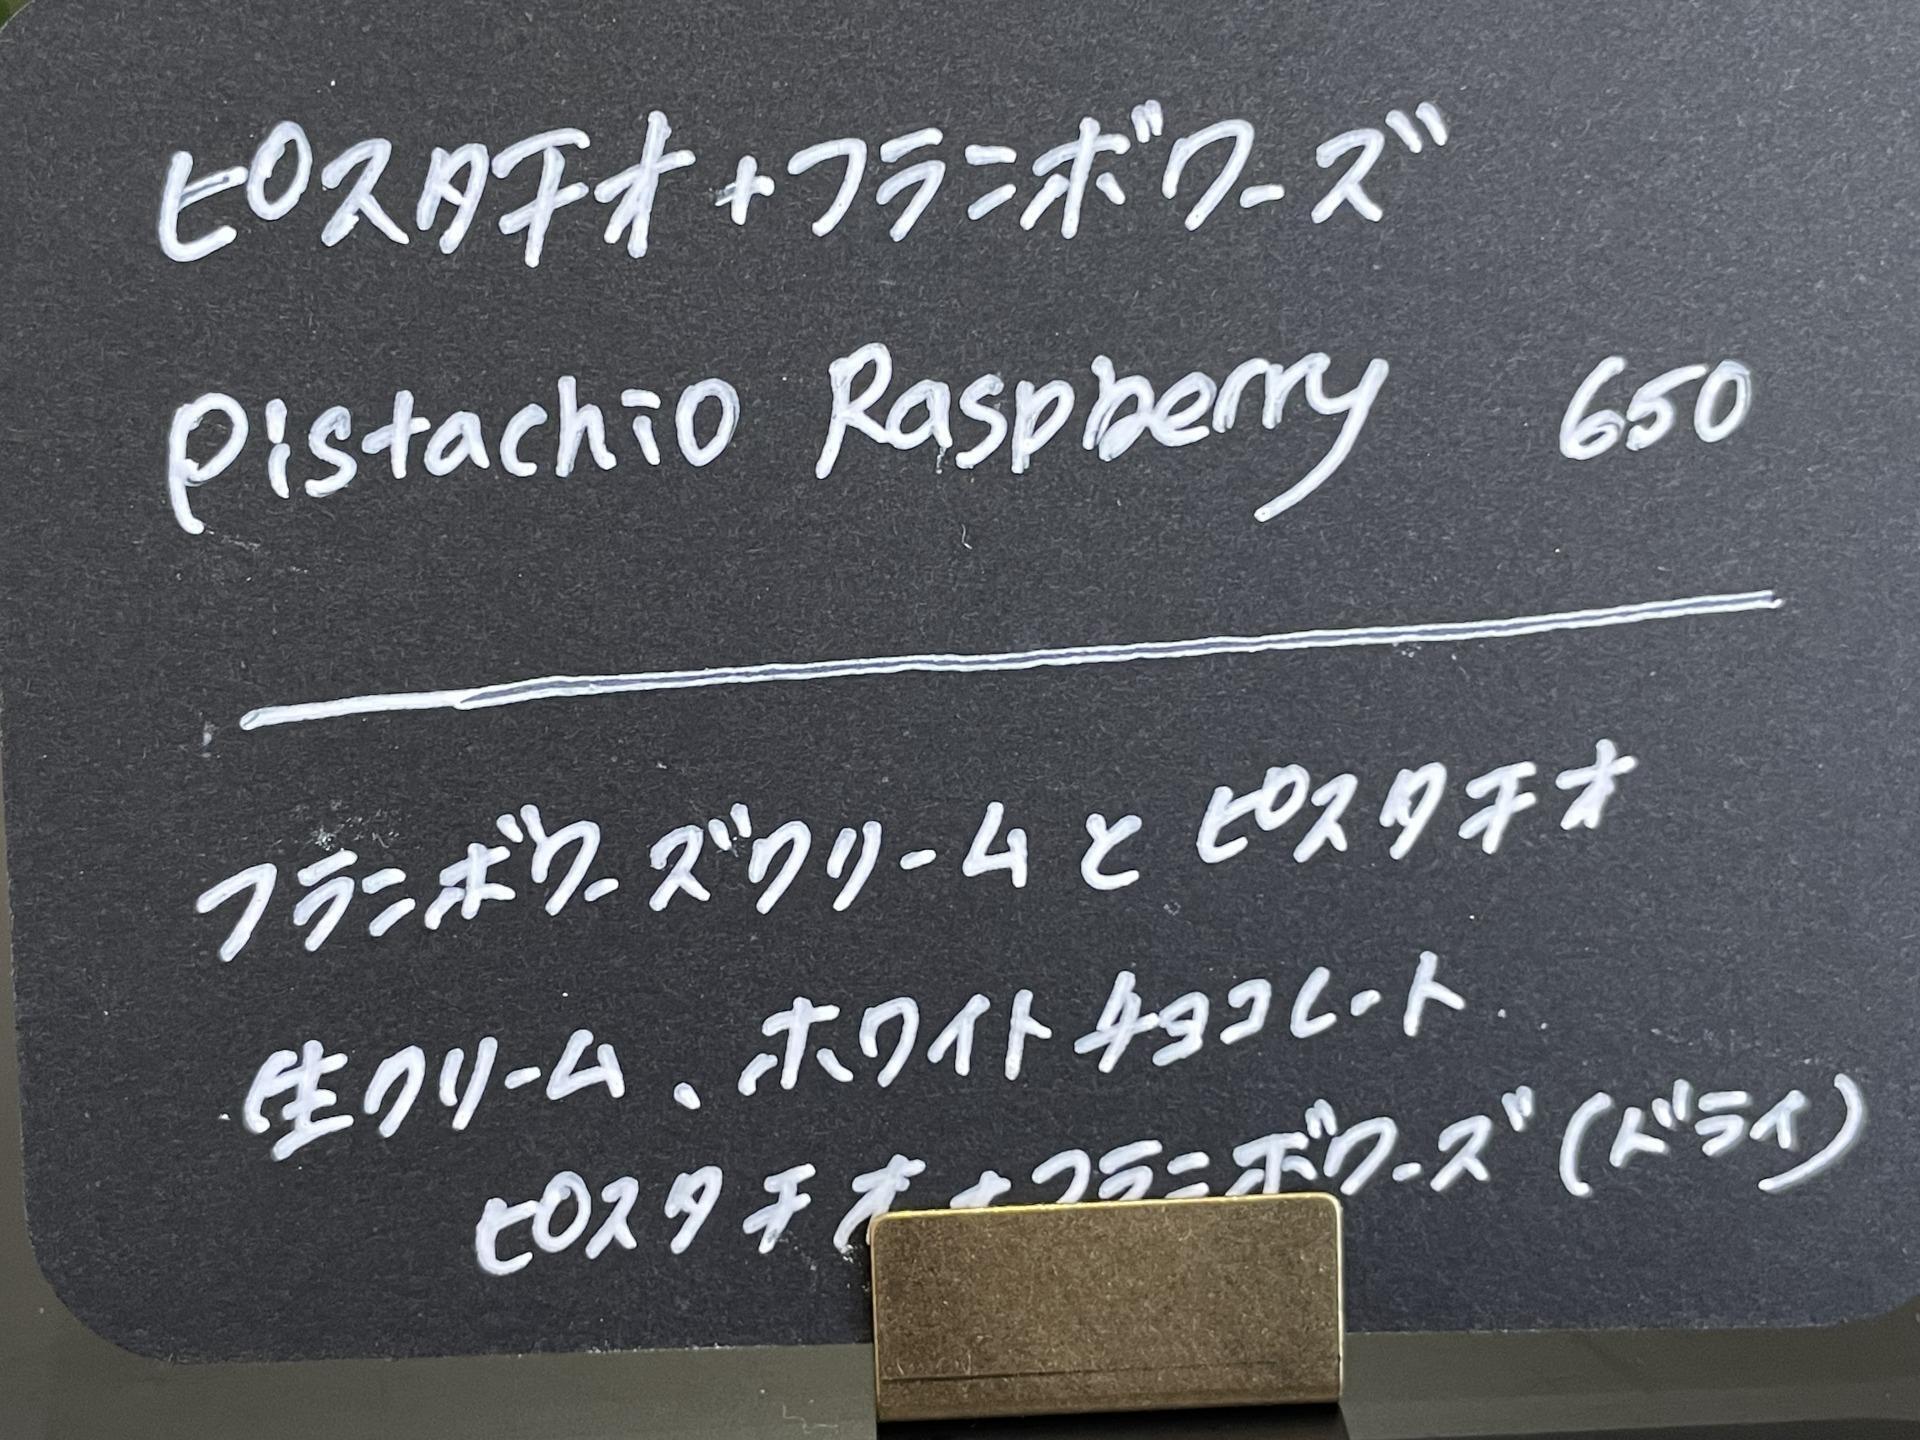 ピスタチオ+フランボワーズ
Pistachio Raspberry 650
フランボワーズクリームとピスタチオ
生クリーム、ホワイトチョコレート
ピスタチオ+フランボワーズ(ドライ)